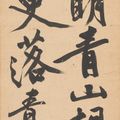 青山
更落青